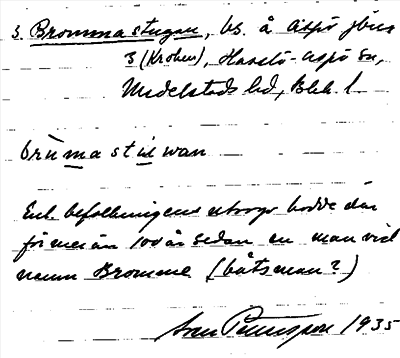 3. Brommastugan, bs. å Aspö jbns
3 (Kroken), Hasslö-Aspö sn,
Medelstads hd, Blek. l.
brùmastu wan
Enl. befolkningens utsago bodde där
för mer än 100 år sedan en man vid
namn Bromme (båtsman?)
Petersson 1935